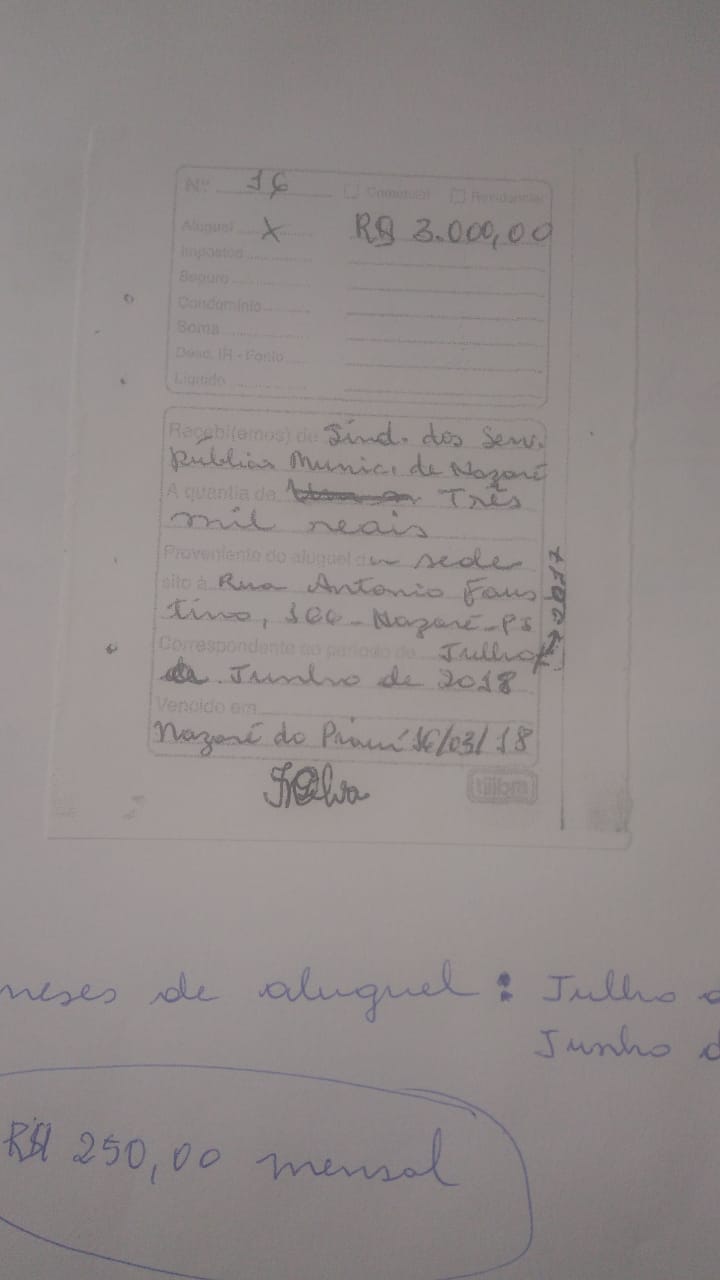 Nº 16 Comercial Residencial
Aluguel X R$ 3.000,00
Impostos
Seguro
Condomínio
Soma
Desc. IR - Fonte
Líquido
Recebi(emos) de Sind. dos Serv.
Públicos Munic. de Nazaré
A quantia de Três
mil reais
Proveniente do aluguel de sede
sito à Rua Antonio Faus
tino, - Nazaré - PI
Correspondente ao período de Julho
Junho de 2018
Vencido em
Nazaré do Piauí 16/03/18
tilibra
meses de aluguel: Julho
Junho
R$ 250,00 mensal